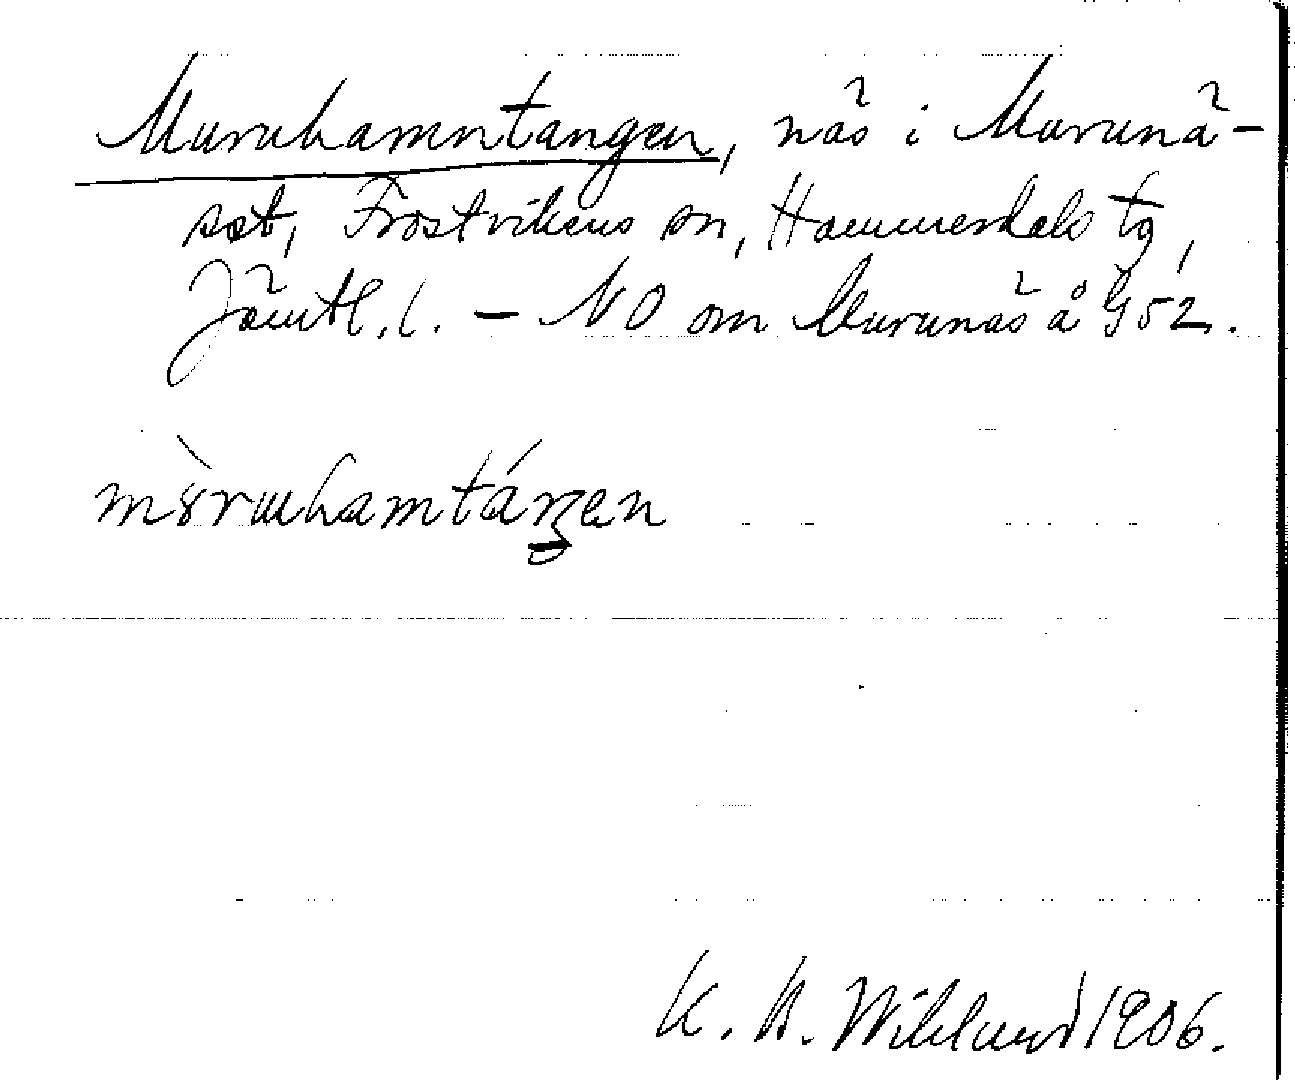 Muruhamntangen, näs i Murunä-
set, Frostvikens sn, Hammerdals tg,
Jämtl. l. – NO om Murunäs å G52.
mȣ̀ruhamtáŋen
K. B. Wiklund 1906.